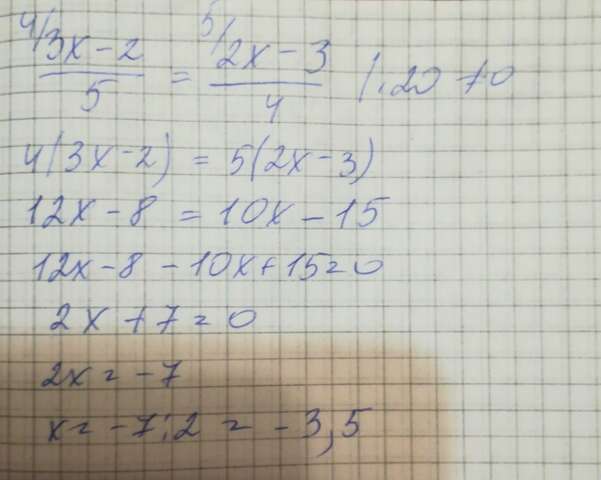 4/ 3x-2 / 5 = 5/ 2x-3 / 4 |·20 ≠0
4(3x-2) = 5(2x-3)
12x-8 = 10x-15
12x-8-10x+15=0
2x+7=0
2x=-7
x=-7:2=-3,5